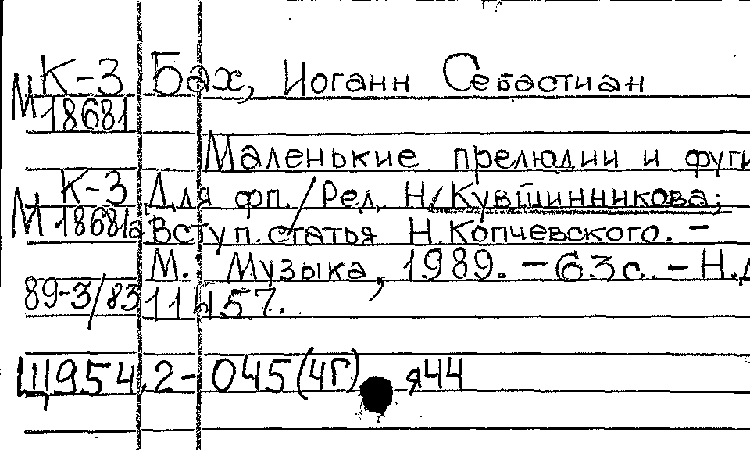 К-3 Бах, Иоганн Себастиан
М 18681
Маленькие прелюдии и фуги
К-3 Для фп. / Ред. Н. Кувшинникова;
М. 18681а Вступ. статья Н. Копчевского. –
М. Музыка, 1989. – 63 с. – Н.д
89-3/83 11457.
Щ954.2-045(4Г) я44